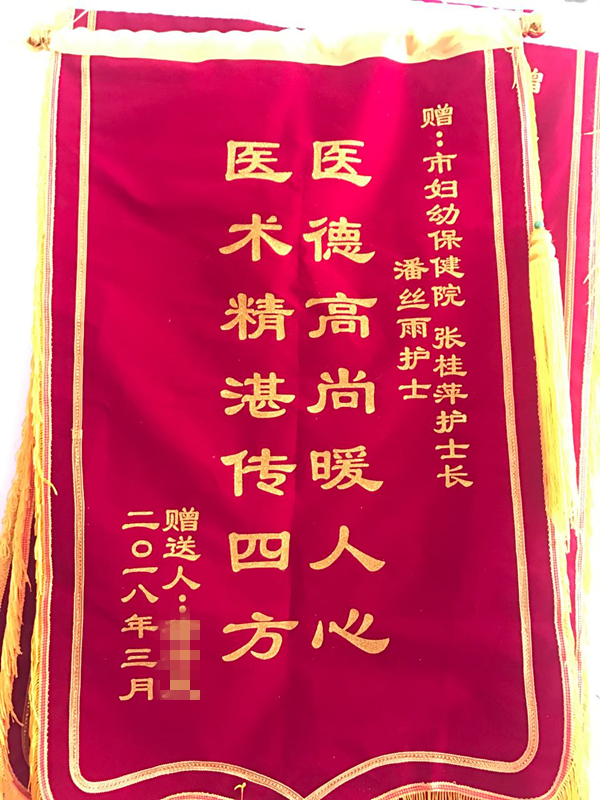 赠：市妇幼保健院 张桂萍护士长
潘丝雨护士
医德高尚暖人心
医术精湛传四方
赠送人：
二〇一八年三月
赠